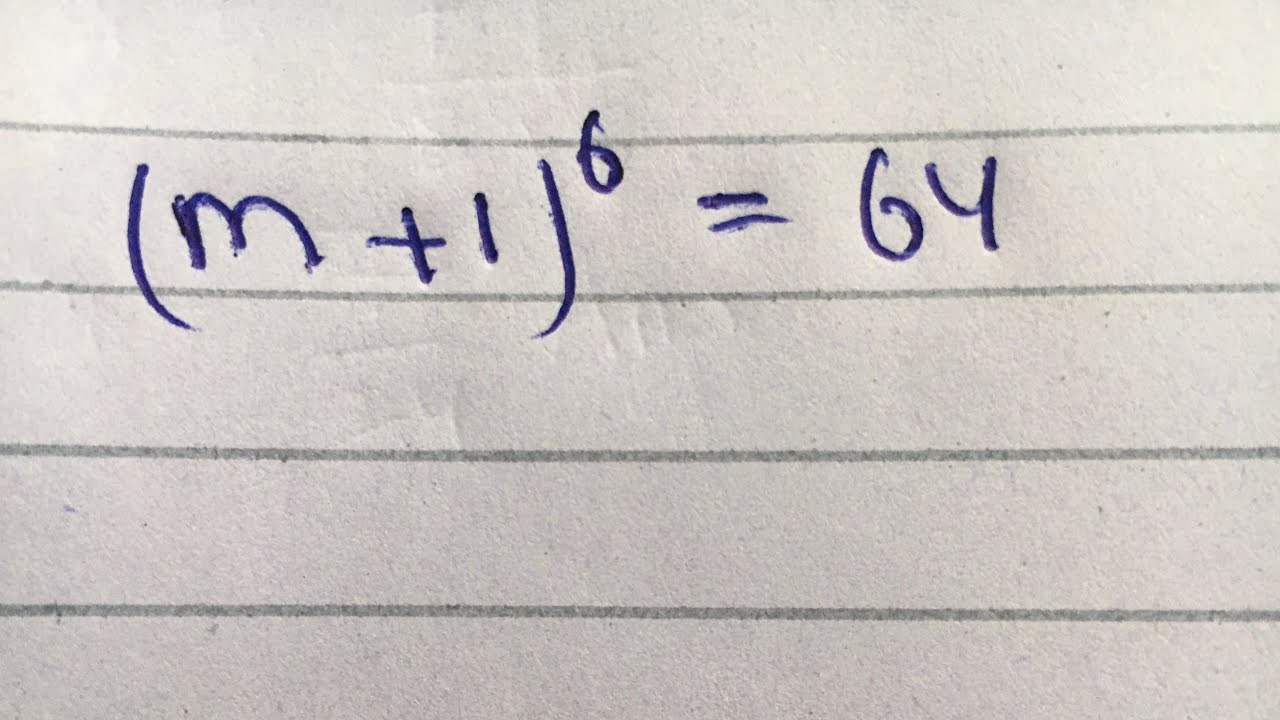 (m+1)⁶ = 64